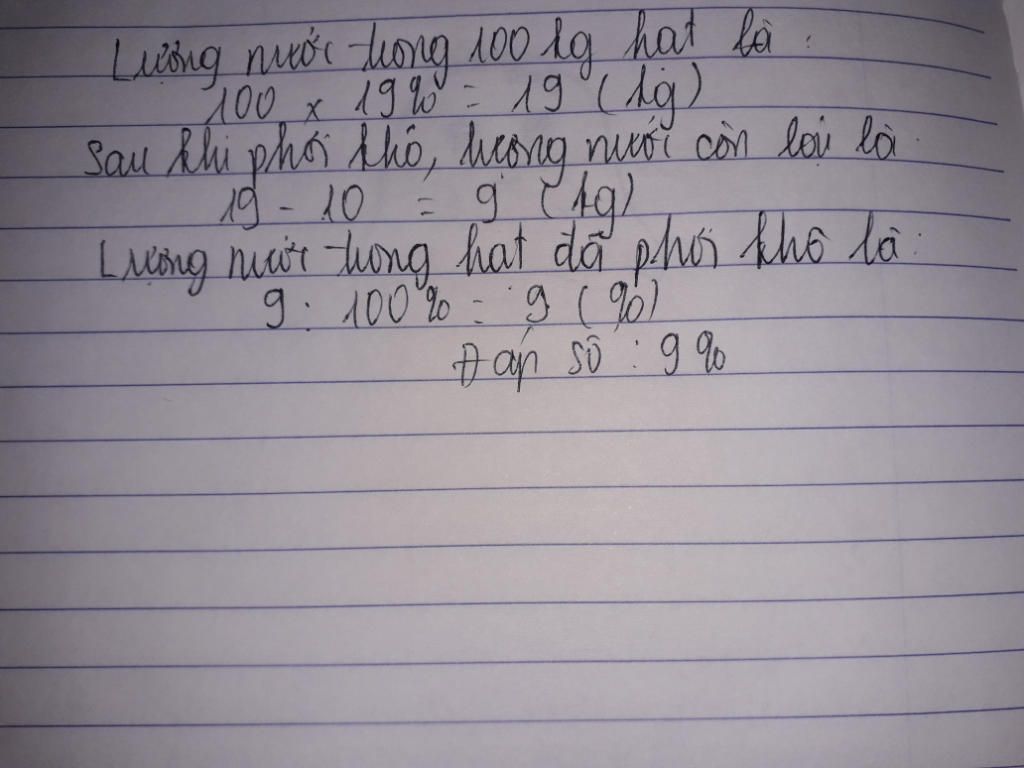 Lượng nước trong 100 kg hạt là :
100 x 19% = 19 (kg)
Sau khi phơi khô, lượng nước còn lại là
19 - 10 = 9 (kg)
Lượng nước trong hạt đã phơi khô là :
9 : 100% = 9 (%)
Đáp số : 9%